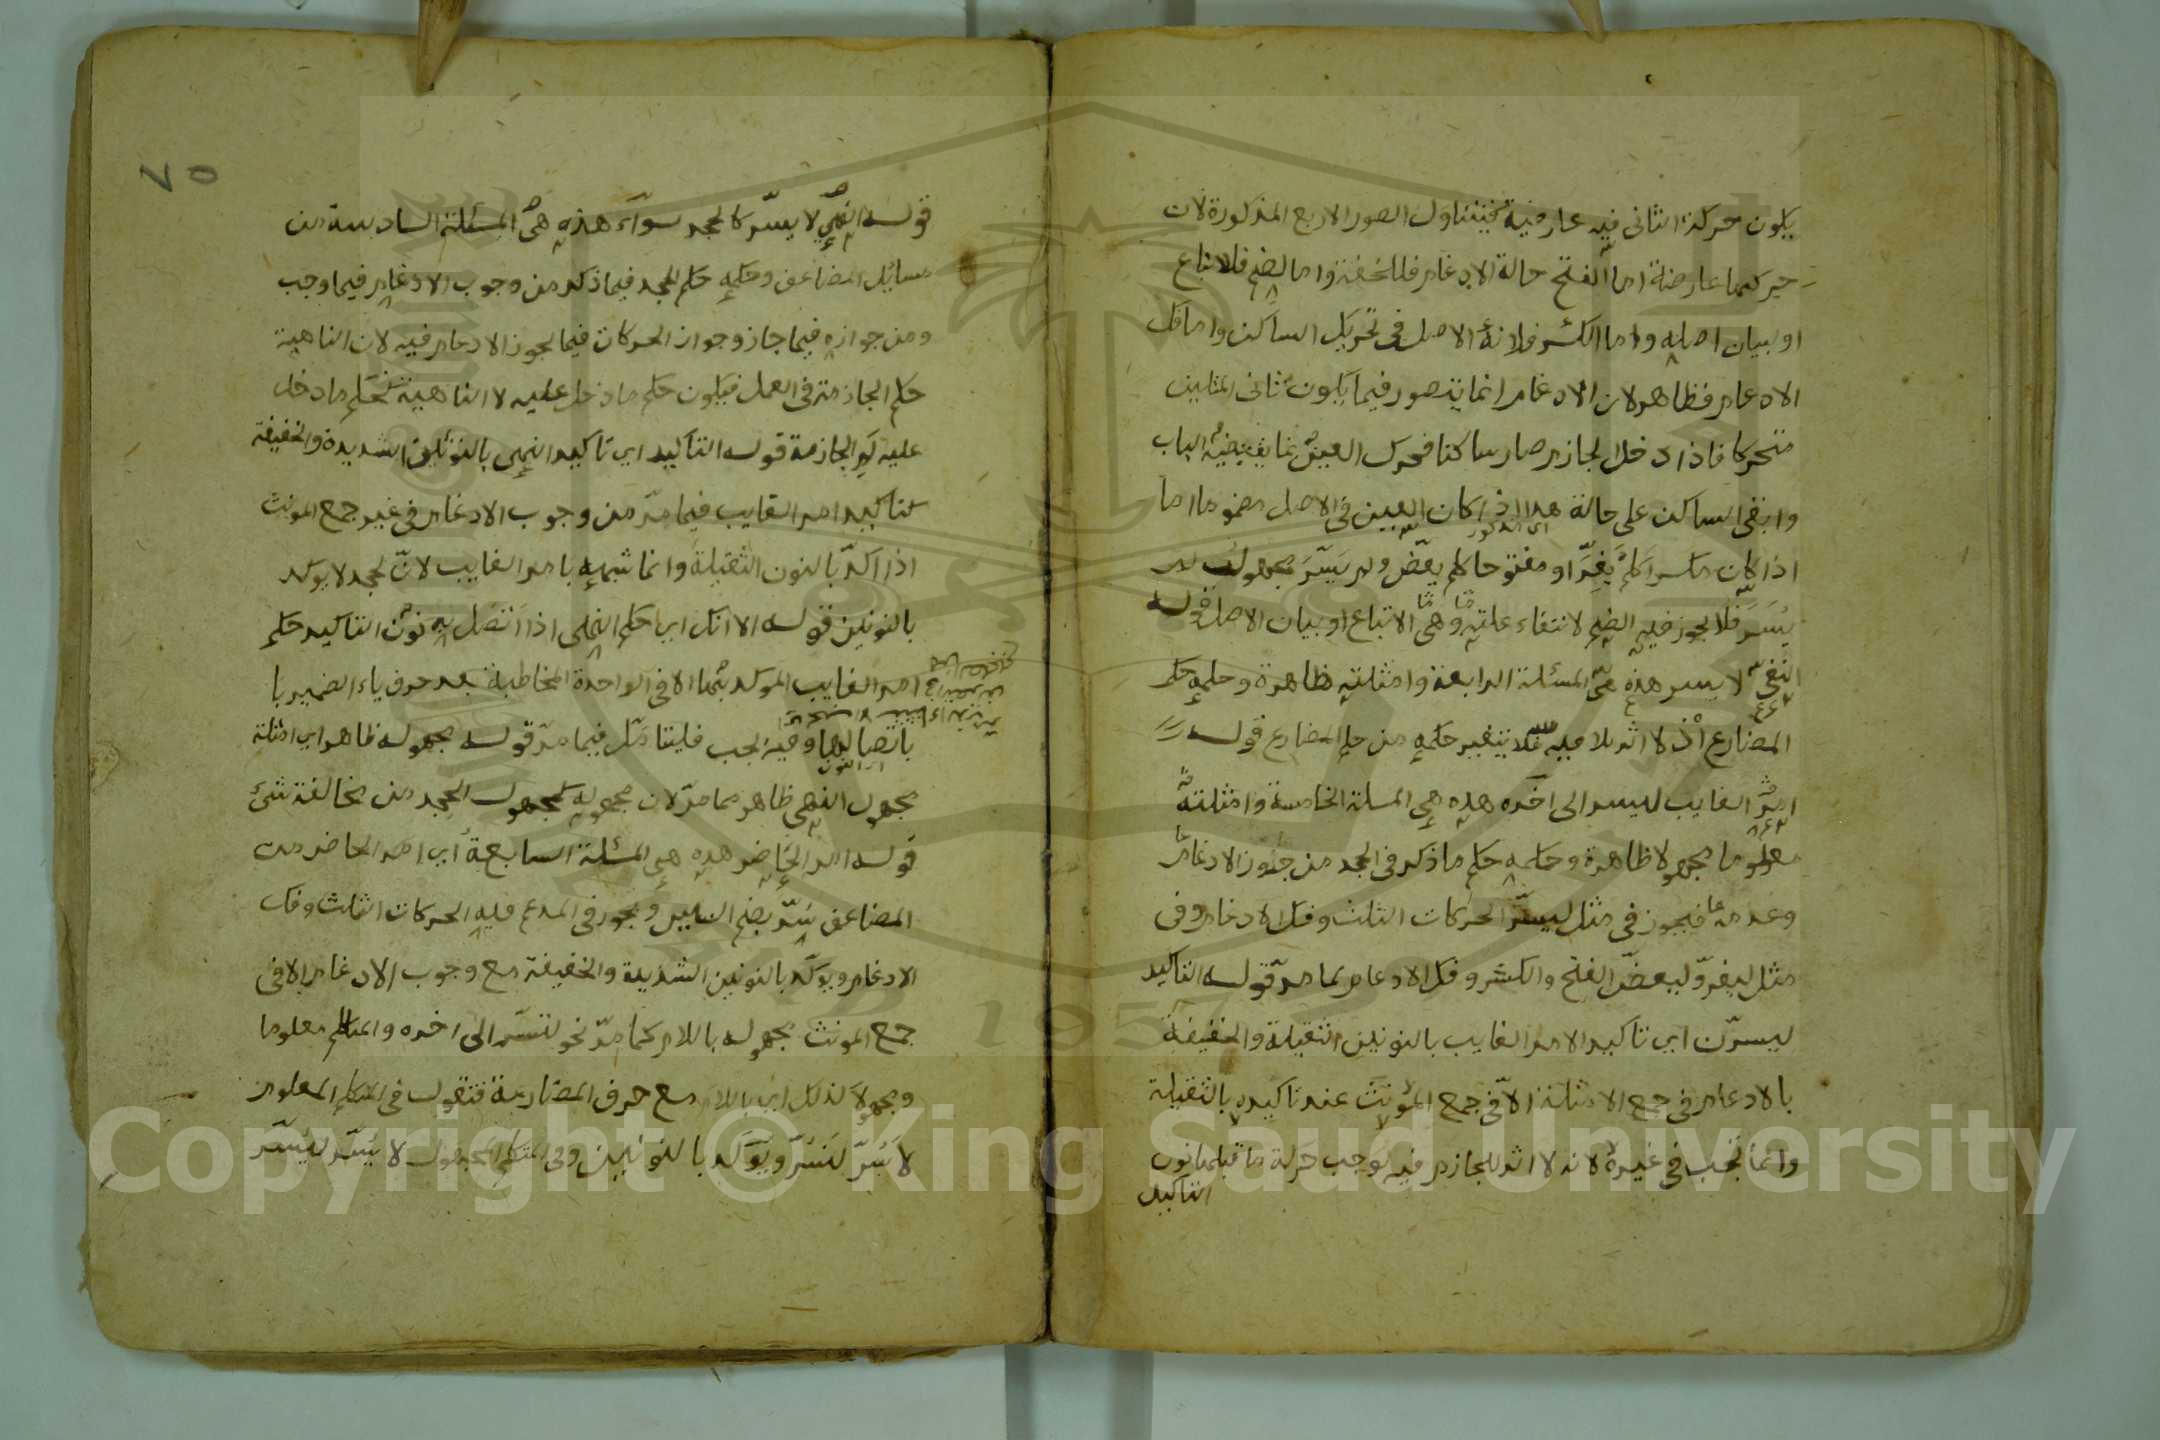 يكون حركة الثاني فيه عارضية فيتناول الصور الاربع المذكورة لان
حركتهما عارضة اما الفتح حالة الادغام فللخفة واما الضم فلاتباع
او بيان اصله واما الكسر فلانه الاصل في تحريك الساكن واما فك
الادغام فظاهر لان الادغام انما يتصور فيما يكون ثاني المثلين
متحركا فاذا دخل الجازم صار ساكنا فحرك العين بما يقتضيه الباب
وابقى الساكن على حالة هذا اذا كان العين في الاصل مضموما اما
اي المذكور
اذا كان مكسرا كلم يفرّ او مفتوحا كلم يعضّ ولم يسرّ مجهول لم
يسرر فلا يجوز فيه الضم لانتفاء علته وهي الاتباع او بيان الاصل قوله
النفي لا يسر هذه هي المسئلة الرابعة وامثلته ظاهرة وحكمه حكم
المضارع اذ لا اثر للا فيه فلا يتغير حكمه من حكم المضارع قوله
امر الغايب ليسر الى اخره هذه هي المسئلة الخامسة وامثلته
معلوما مجهولا ظاهرة وحكمه حكم ما ذكر في الجحد من جواز الادغام
وعدمه فيجوز في مثل ليسرّ الحركات الثلث وفك الادغام وفي
مثل ليفرّ وليعضّ الفتح والكسر وفك الادغام كما مر قوله التاكيد
ليسرّن اي تاكيد الامر الغايب بالنونين الثقيلة والخفيفة
بالادغام في جمع الامثلة الا في جمع المؤنث عند تاكيده بالثقيلة
وانما تجب في غيره لانه لا اثر للجازم فيه لوجب حركة ما قبلها نون
التاكيد
٧٥
قوله النهي لا يسرّ كالجحد سوآء هذه هي المسئلة السادسة من
مسائل المضاعف وحكمه حكم الجحد فيما ذكر من وجوب الادغام فيما وجب
ومن جوازه فيما جاز وجواز الحركات فيما يجوز الادغام فيه لان الناهية
حكم الجازمة في العمل فيكون حكم ما دخل عليه لا الناهية كحكم ما دخل
عليه لم الجازمة قوله التاكيد اي تاكيد النهي بالنونين الشديدة والخفيفة
كتاكيد امر الغايب فيما مرّ من وجوب الادغام في غير جمع المونث
اذا اكدّ بالنون الثقيلة وانما شبهه بامر الغايب لانّ لجحد لا يوكد
بالنونين قوله الا انك اي حكم النهي اذا اتصل به نون التاكيد حكم
امر الغايب الموكد بهما الا في الواحدة المخاطبة بعد حرف ياء الضمير با
باتصالها وفيه لجب فليتامل فيما مرّ قوله مجهوله ظاهر اي امثلة
اي النون
مجهول النهي ظاهر مما مرّ لان مجهوله كمجهول الجحد من مخالفة شئ
قوله امر الحاضر هذه هي المسئلة السابعة اي امر الحاضر من
المضاعف سُرّ بضم السين ويجوز في المدغم فيه الحركات الثلث وفك
الادغام ويوكّد بالنونين الشديدة والخفيفة مع وجوب الادغام الا في
جمع المونث مجهوله باللام كما مرّ نحو لتسرّ الى اخره والمتكلم معلوما
ومجهولا كذلك اي باللام مع حرف المضارعة فتقول في المتكلم المعلوم
لاسُرّ لنسُرّ ويوكّد بالنونين وفي المتكلم المجهول